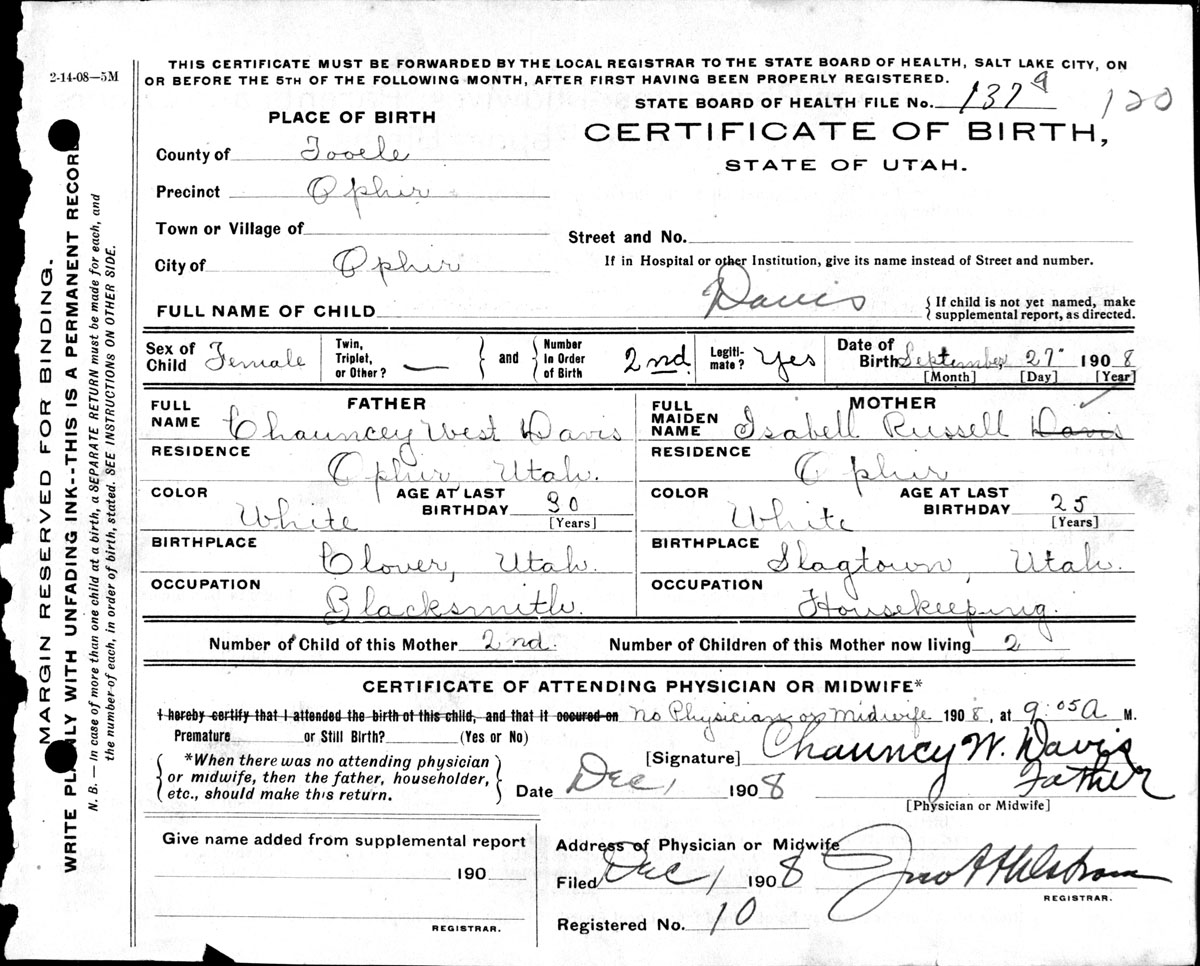 2-14-08—5M
THIS CERTIFICATE MUST BE FORWARDED BY THE LOCAL REGISTRAR TO THE STATE BOARD OF HEALTH, SALT LAKE CITY, ON
OR BEFORE THE 5TH OF THE FOLLOWING MONTH, AFTER FIRST HAVING BEEN PROPERLY REGISTERED.
STATE BOARD OF HEALTH FILE No. 137 a 120
PLACE OF BIRTH
CERTIFICATE OF BIRTH,
STATE OF UTAH.
County of Tooele
Precinct Ophir
Town or Village of
Street and No.
City of Ophir
If in Hospital or other Institution, give its name instead of Street and number.
FULL NAME OF CHILD Davis
{ If child is not yet named, make
supplemental report, as directed.
Sex of Child Female Twin, Triplet, or Other? — } and { Number In Order of Birth 2nd Legiti- mate? Yes Date of Birth September 27" 1908
[Month] [Day] [Year]
FATHER
FULL NAME Chauncey West Davis
RESIDENCE
Ophir, Utah.
COLOR White AGE AT LAST BIRTHDAY 30
[Years]
BIRTHPLACE
Clover, Utah.
OCCUPATION
Blacksmith.
MOTHER
FULL MAIDEN NAME Isabell Russell Davis
RESIDENCE
Ophir
COLOR White AGE AT LAST BIRTHDAY 25
[Years]
BIRTHPLACE
Slagtown, Utah.
OCCUPATION
Housekeeping.
Number of Child of this Mother 2nd. Number of Children of this Mother now living 2
CERTIFICATE OF ATTENDING PHYSICIAN OR MIDWIFE*
I hereby certify that I attended the birth of this child, and that it occured on no Physician or Midwife 1908, at 9:05 A M.
Premature or Still Birth? (Yes or No)
[Signature] Chauncy W. Davis
Father
[Physician or Midwife]
{ *When there was no attending physician
or midwife, then the father, householder,
etc., should make this return. }
Date Dec 1 1908
Give name added from supplemental report
190
REGISTRAR.
Address of Physician or Midwife
Filed Dec 1 1908
REGISTRAR.
Registered No. 10
MARGIN RESERVED FOR BINDING.
WRITE PLAINLY WITH UNFADING INK--THIS IS A PERMANENT RECORD
N. B. — In case of more than one child at a birth, a SEPARATE RETURN must be made for each, and
the number of each, in order of birth, stated. SEE INSTRUCTIONS ON OTHER SIDE.